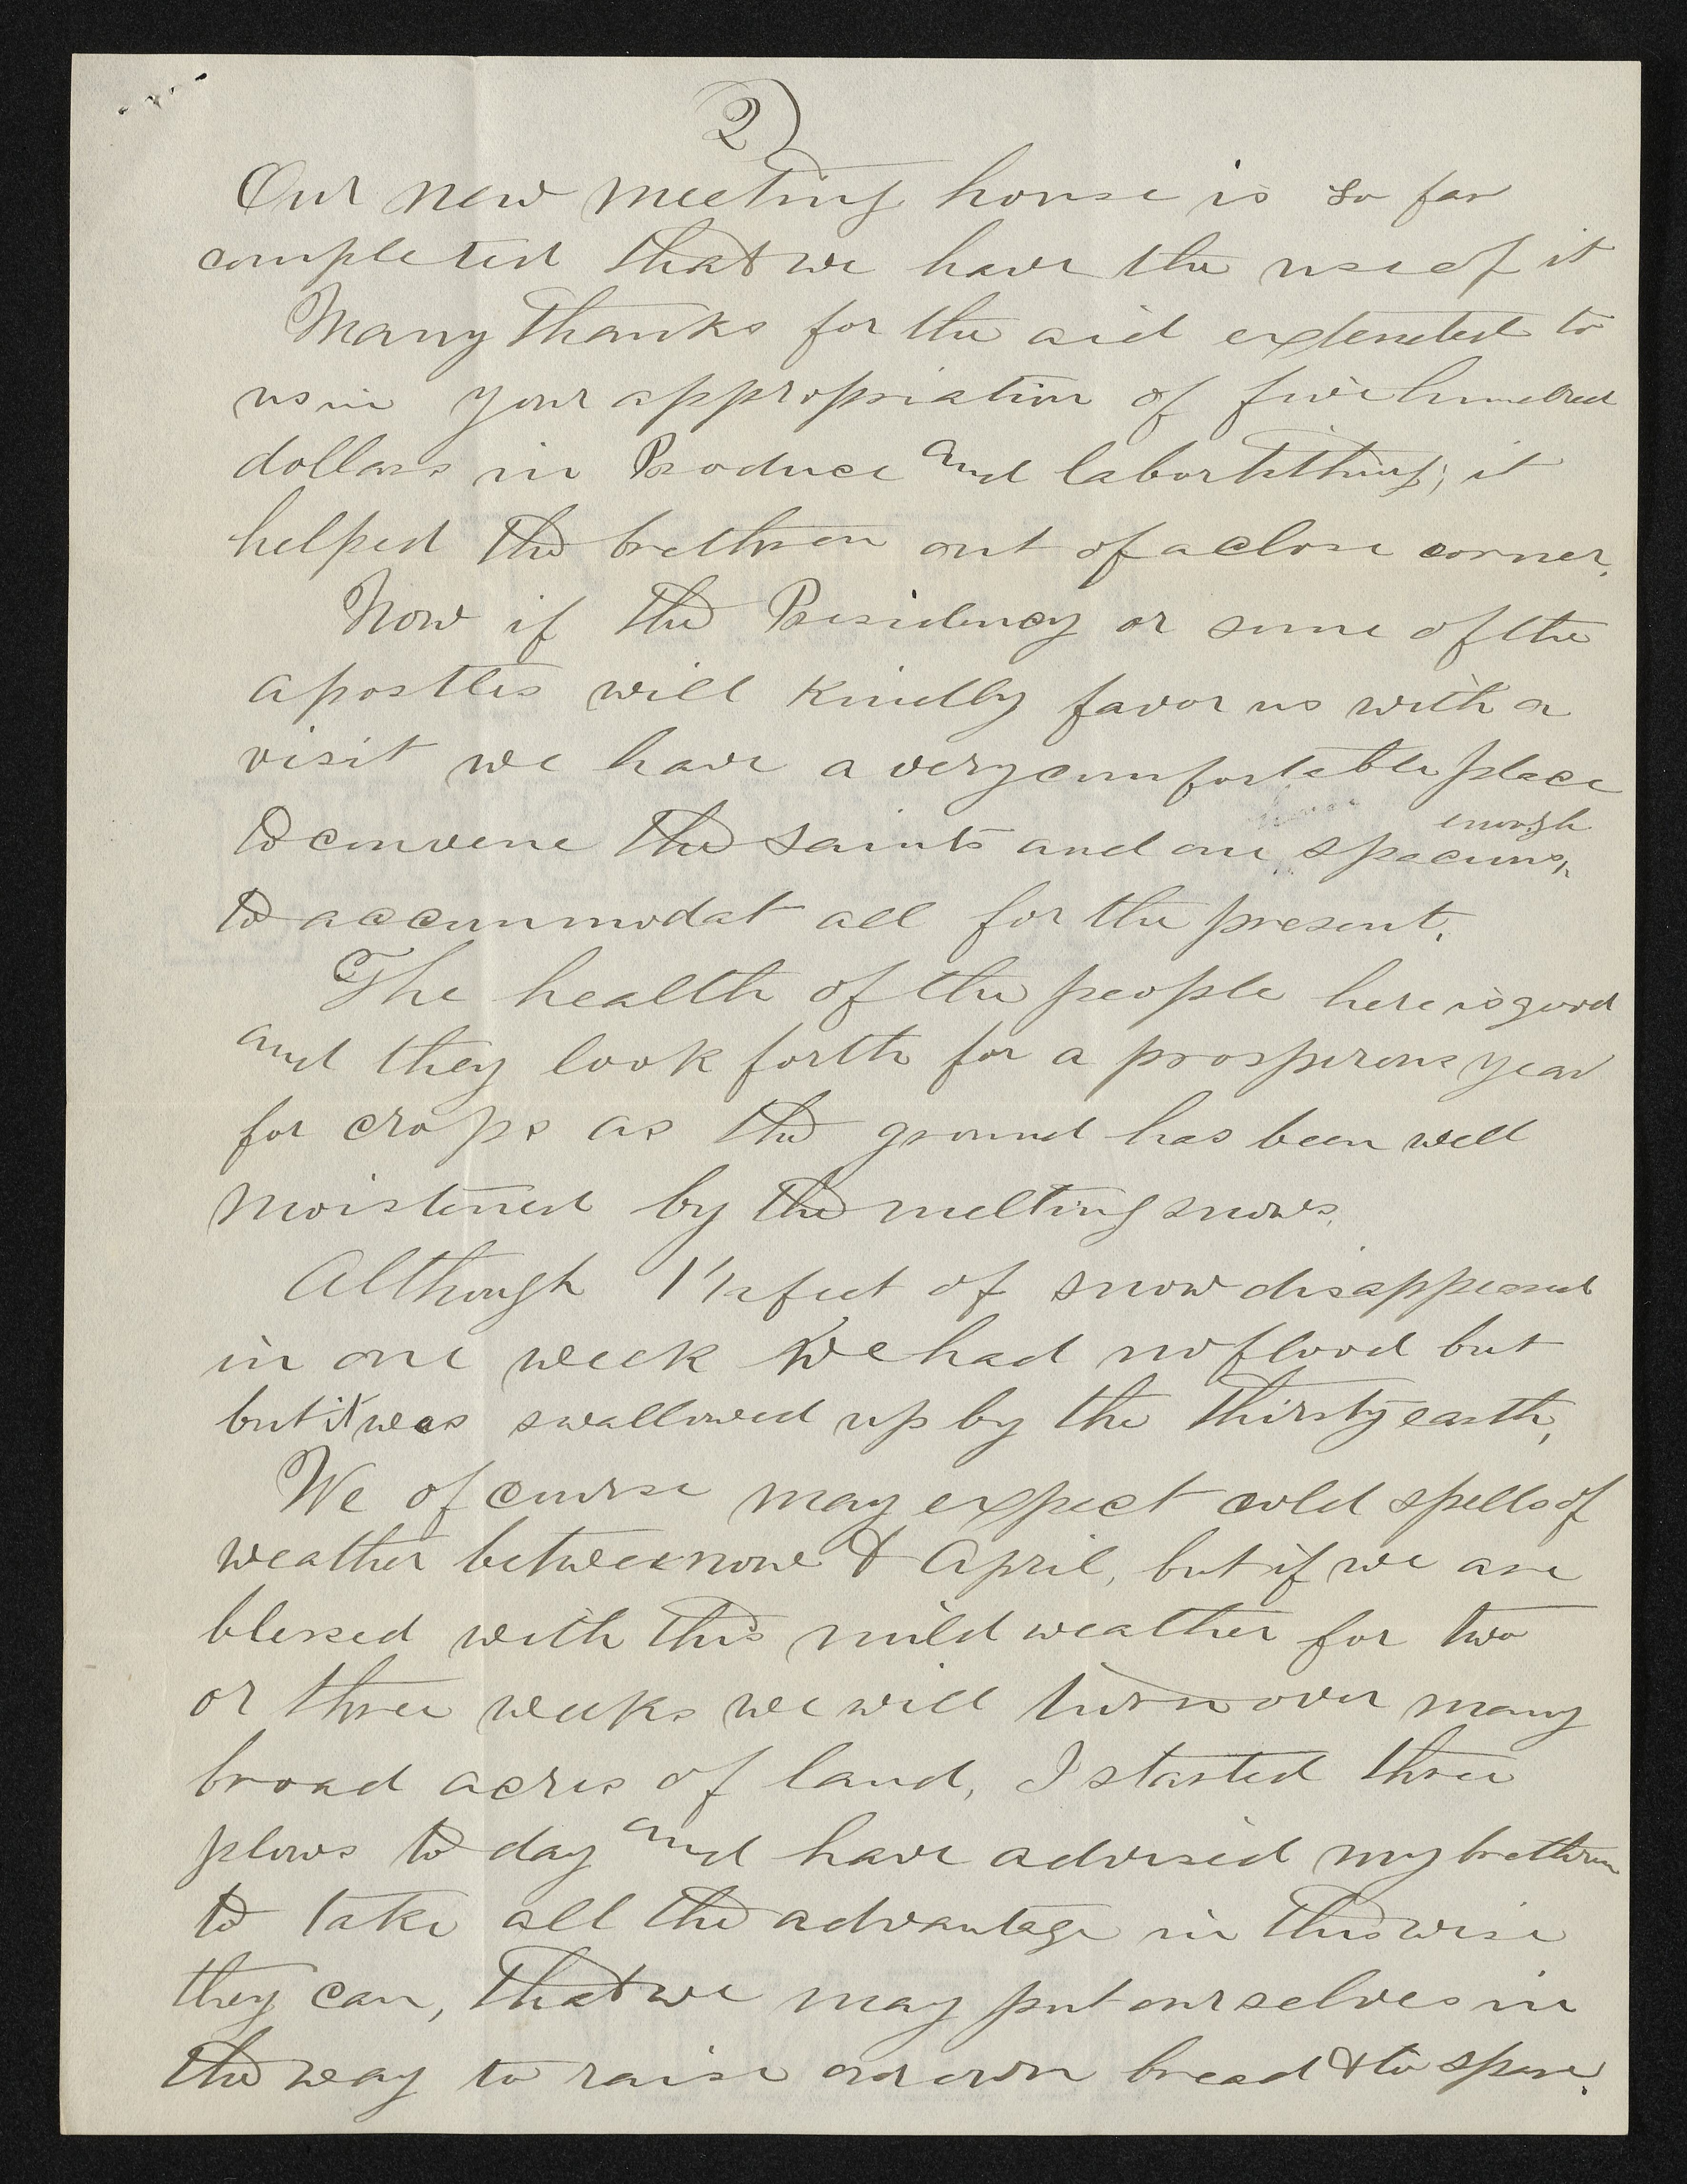 2)
Our new meeting house is so far
completed that we have the use of it
Many thanks for the aid extended to
us in your appropriation of five hundred
dollars in Produce and labor tithing; it
helped the brethren out of a close corner.
Now if the Presidency or some of the
apostles will kindly favor us with a
visit we have a very comfortable place
enough
to convene the saints and one spacious
to accommodat all for the present.
The health of the people here is good
and they look forth for a prosperous year
for crops as the ground has been well
moistened by the melting snows.
Although 1 1/2 feet of snow disappeared
in one week we had no flood but
but it was swallowed up by the thirsty earth,
We of course may expect cold spells of
weather between now & April, but if we are
blessed with this mild weather for two
or three weeks we will turn over many
broad acres of land, I started three
plows to day and have advised my brethren
to take all the advantage in this wise
they can, that we may put ourselves in
the way to raise our own bread & to spare.